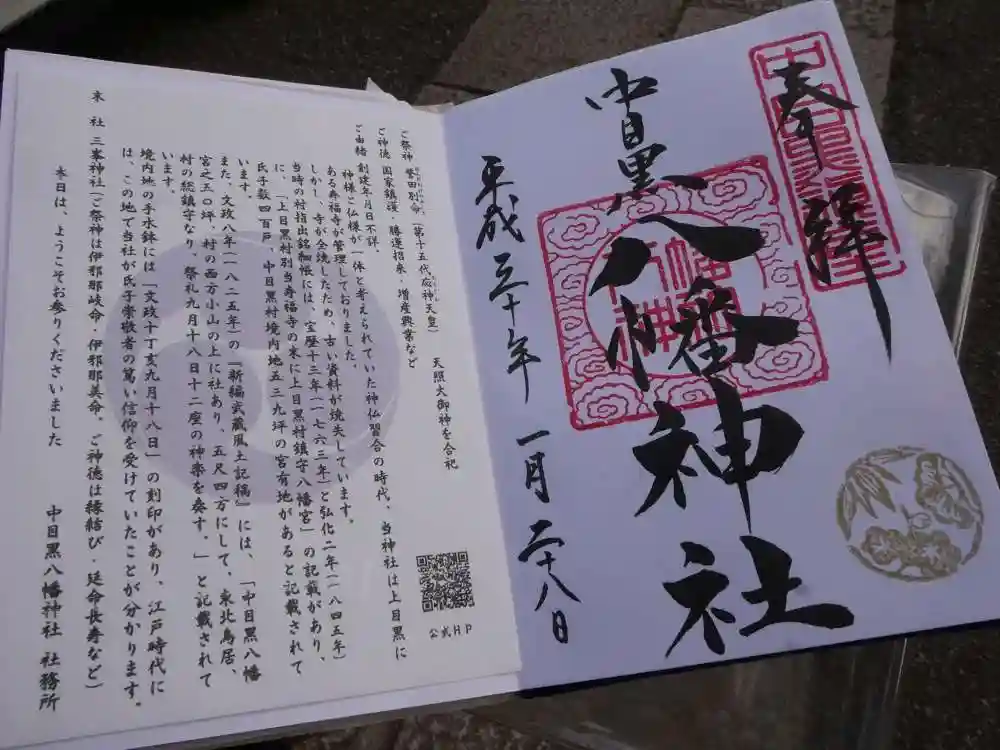 奉拝
中目黒八幡神社
八幡神社
平成三十年一月二十八日
ご祭神 誉田別命(第十五代応神天皇) 天照大御神を合祀
ご神徳 国家鎮護・勝運招来・増産興業など
ご由緒 創建年月日不詳。
神様と仏様が一体と考えられていた神仏習合の時代、当神社は上目黒に
ある寿福寺が管理しておりました。
しかし、寺が全焼したため、古い資料が焼失しています。
当時の村指出銘細帳には、宝暦十三年(一七六三年)と弘化二年(一八四五年)
に、「上目黒村別当寿福寺の末に上目黒村鎮守八幡宮」の記載があり、
氏子数四百戸、中目黒村境内地五三九坪の宮有地があると記載されて
います。
また、文政八年(一八二五年)の『新編武蔵風土記稿』には、「中目黒八幡
宮之五〇坪、村の西方小山の上に社あり、五尺四方にして、東北鳥居、
村の総鎮守なり、祭礼九月十八日十二座の神楽を奏す。」と記載されて
います。
境内地の手水鉢には「文政十丁亥九月十八日」の刻印があり、江戸時代に
は、この地で当社が氏子崇敬者の篤い信仰を受けていたことが分かります。
末 社 三峯神社(ご祭神は伊邪那岐命・伊邪那美命。ご神徳は縁結び・延命長寿など)
本日は、ようこそお参りくださいました
中目黒八幡神社 社務所
公式HP